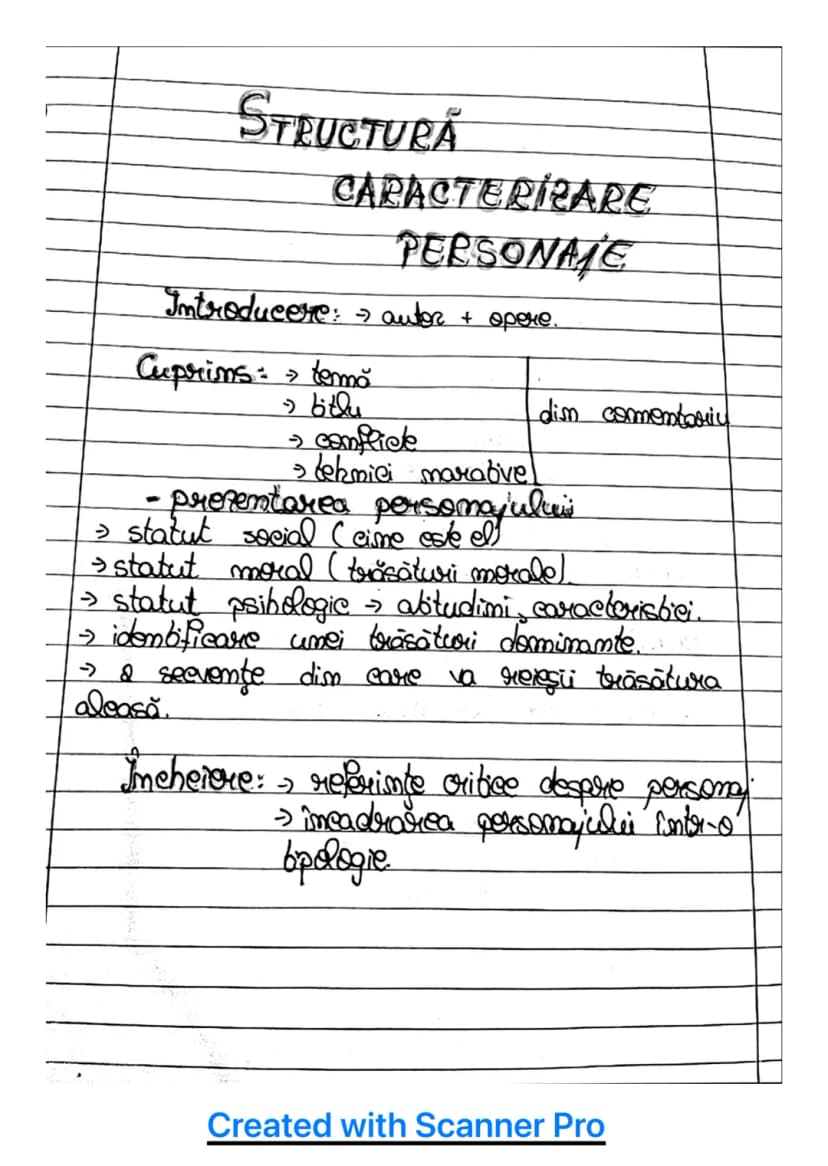 STRUCTURĂ
CARACTERIZARE
PERSONAJE
Introducere: → autor + opere.
Cuprins: → temă
→ titlu
→ conflicte
→ tehnici narative
din comentariu
- prezentarea personajului
→ statut social (cine este el)
→ statut moral (trăsături morale).
→ statut psihologic → atitudini, caracteristici.
→ identificare unei trăsături dominante.
→ 2 secvențe din care va reieșii trăsătura
aleasă.
Încheiere: → referințe critice despre personaj
→ încadrarea personajului într-o
tipologie.
Created with Scanner Pro